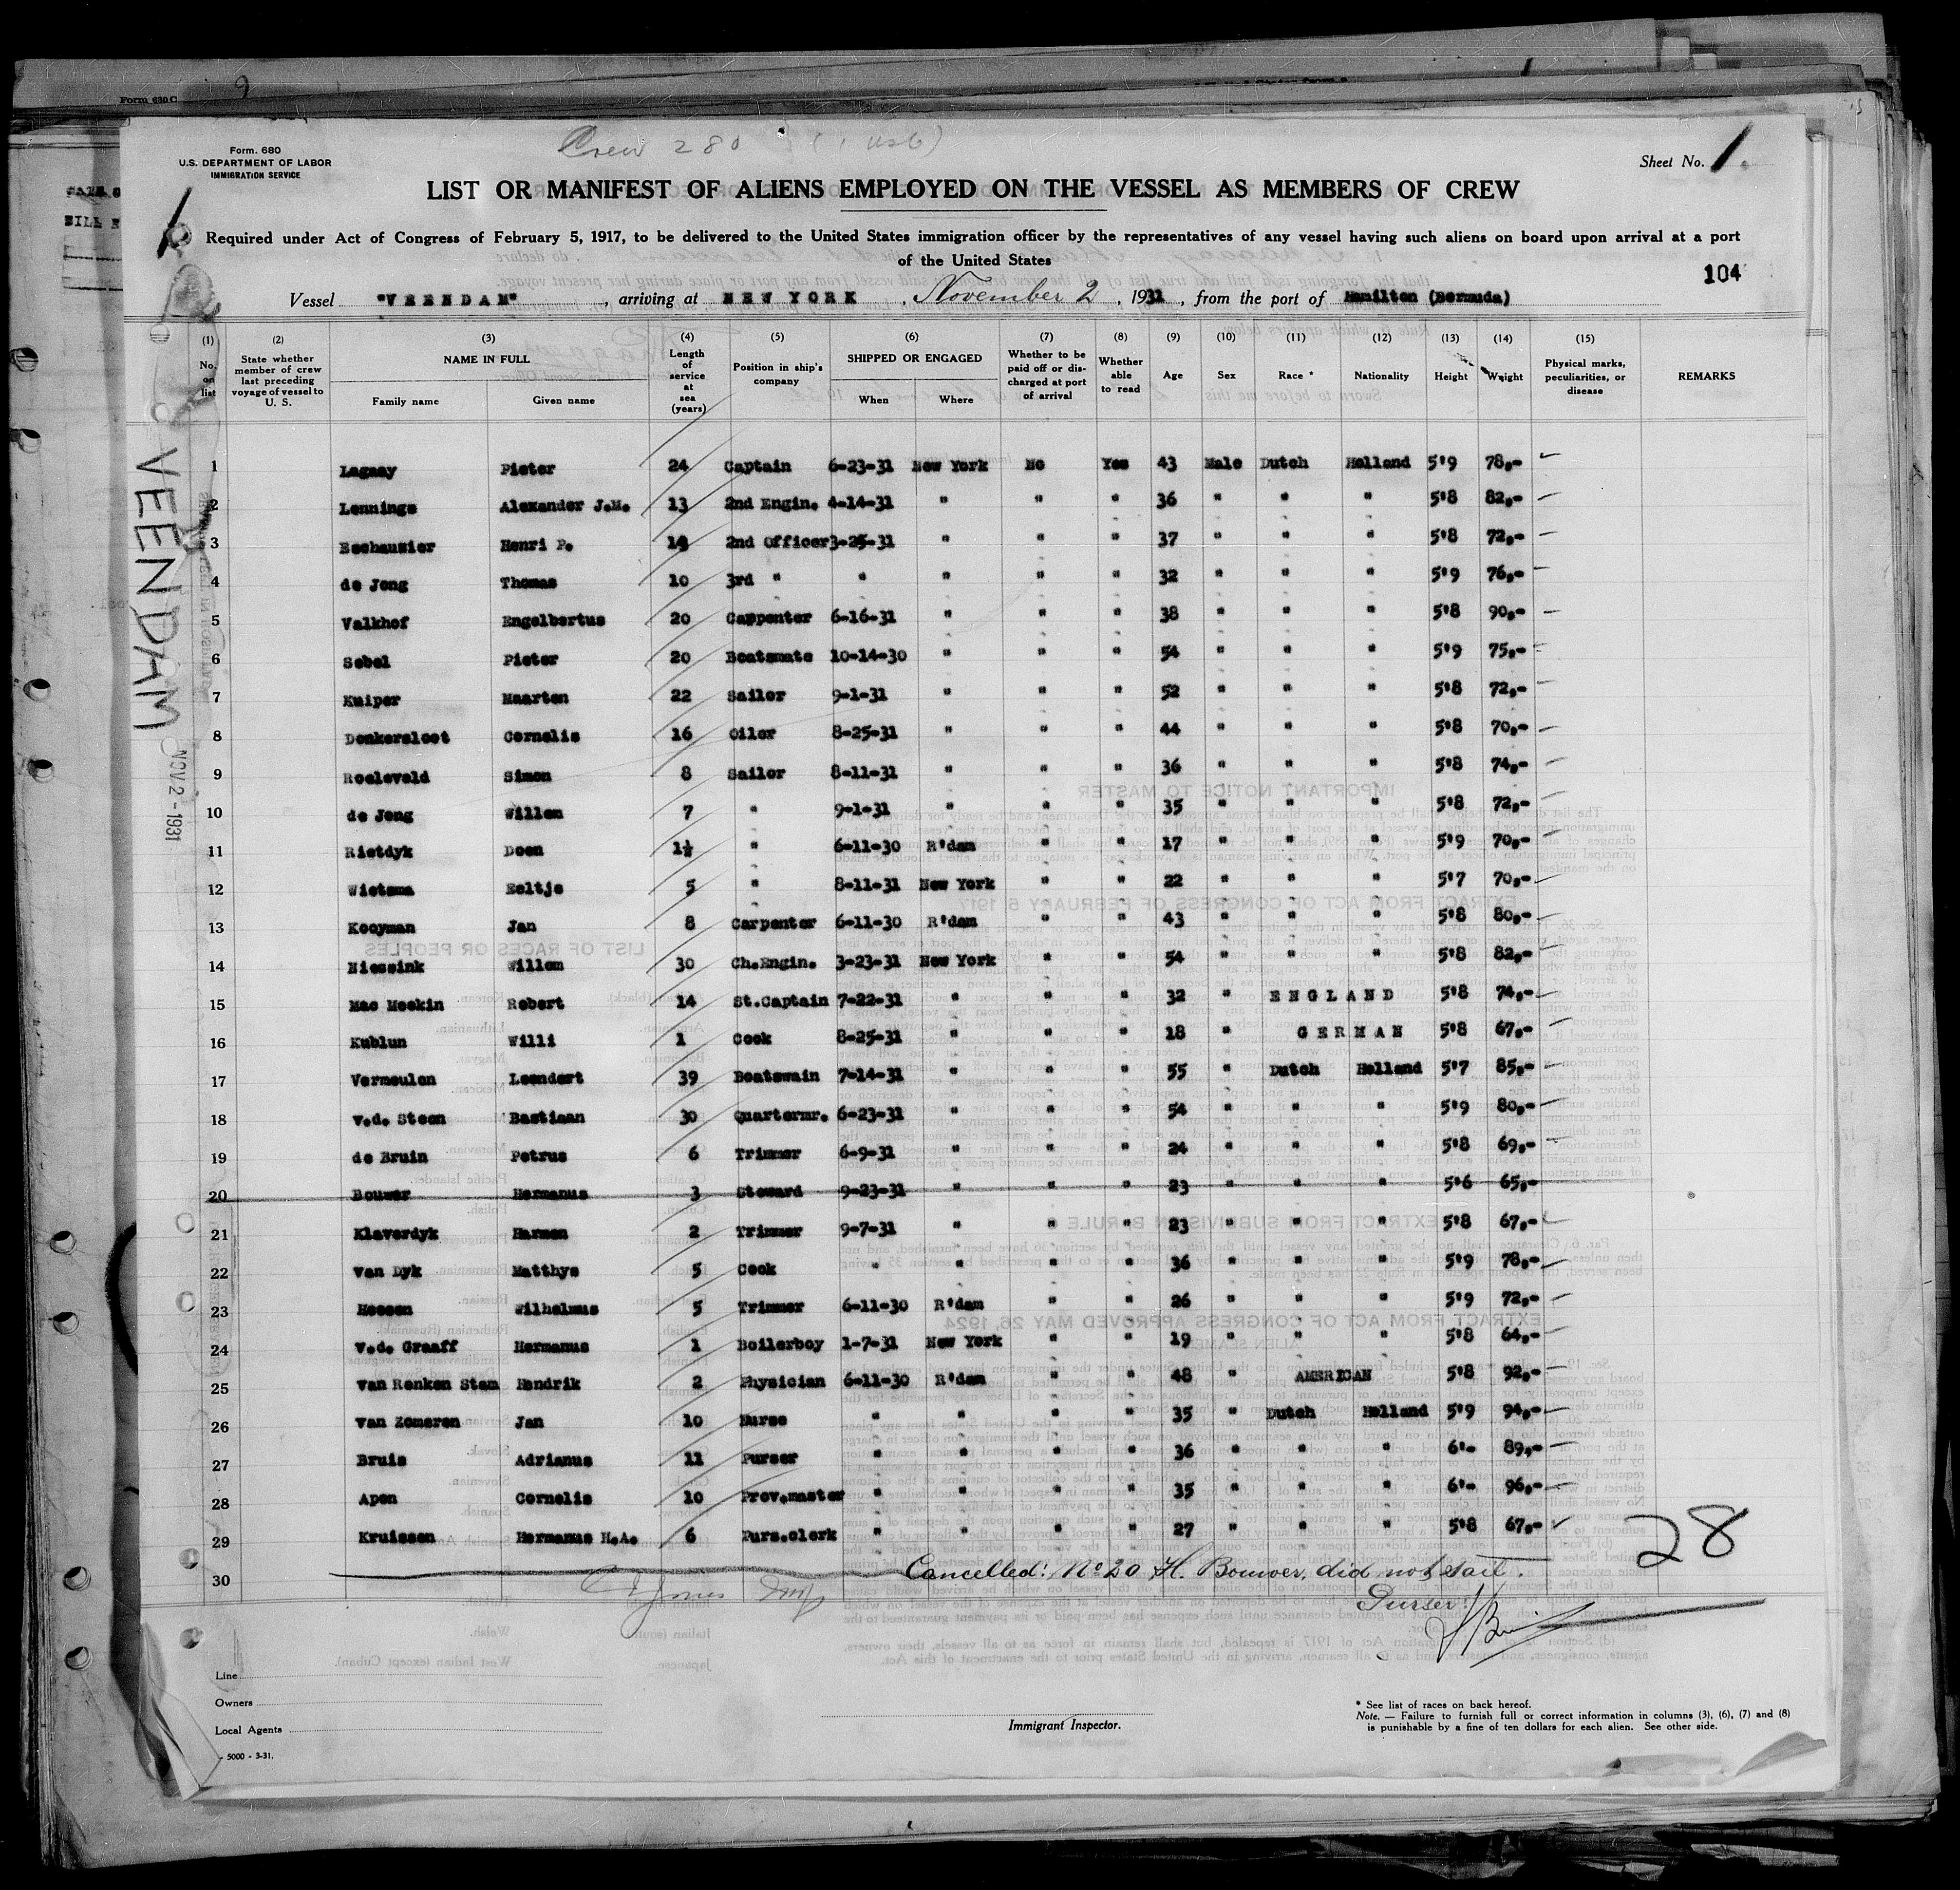 Form 630 C
9
Crew 280
Form. 680
U.S. DEPARTMENT OF LABOR
IMMIGRATION SERVICE
Sheet No. 1.
1
LIST OR MANIFEST OF ALIENS EMPLOYED ON THE VESSEL AS MEMBERS OF CREW
Required under Act of Congress of February 5, 1917, to be delivered to the United States immigration officer by the representatives of any vessel having such aliens on board upon arrival at a port
of the United States
104
Vessel "VEENDAM", arriving at NEW YORK, November 2, 1931, from the port of Hamilton (Bermuda)
(1) No. on list (2) State whether member of crew last preceding voyage of vessel to U. S. (3) NAME IN FULL Family name Given name (4) Length of service at sea (years) (5) Position in ship's company (6) SHIPPED OR ENGAGED When Where (7) Whether to be paid off or discharged at port of arrival (8) Whether able to read (9) Age (10) Sex (11) Race * (12) Nationality (13) Height (14) Weight (15) Physical marks, peculiarities, or disease REMARKS
1 Lagaay Pieter 24 Captain 6-23-31 New York No Yes 43 Male Dutch Holland 5'9 78,-
2 Lennings Alexander J.M. 13 2nd Engin. 4-14-31 " " " 36 " " " 5'8 82,-
3 Eschauzier Henri P. 19 2nd Officer 3-25-31 " " " 37 " " " 5'8 72,-
4 de Jong Thomas 10 3rd " " " " " 32 " " " 5'9 76,-
5 Valkhof Engelbertus 20 Carpenter 6-16-31 " " " 38 " " " 5'8 90,-
6 Sebel Pieter 20 Boatsmate 10-14-30 " " " 54 " " " 5'9 75,-
7 Kuiper Maarten 22 Sailor 9-1-31 " " " 52 " " " 5'8 72,-
8 Donkersloot Cornelis 16 Oiler 8-25-31 " " " 44 " " " 5'8 70,-
9 Roeleveld Simon 8 Sailor 8-11-31 " " " 36 " " " 5'8 74,-
10 de Jong Willem 7 " 9-1-31 " " " 35 " " " 5'8 72,-
11 Rietdyk Doen 1½ " 6-11-30 R'dam " " 17 " " " 5'9 70,-
12 Wietsma Eeltje 5 " 8-11-31 New York " " 22 " " " 5'7 70,-
13 Kooyman Jan 8 Carpenter 6-11-30 R'dam " " 43 " " " 5'8 80,-
14 Niessink Willem 30 Ch.Engin. 3-23-31 New York " " 54 " " " 5'8 82,-
15 Mac Meekin Robert 14 St.Captain 7-22-31 " " " 32 " ENGLAND 5'8 74,-
16 Kublun Willi 1 Cook 8-25-31 " " " 18 " GERMAN 5'8 67,-
17 Vermeulen Leendert 39 Boatswain 7-14-31 " " " 55 " Dutch Holland 5'7 85,-
18 v.d. Steen Bastiaan 30 Quartermr. 6-23-31 " " " 54 " " " 5'9 80,-
19 de Bruin Petrus 6 Trimmer 6-9-31 " " " 24 " " " 5'8 69,-
20 Bouwer Hermanus 3 Steward 9-23-31 " " " 23 " " " 5'6 65,-
21 Klaverdyk Harmen 2 Trimmer 9-7-31 " " " 23 " " " 5'8 67,-
22 van Dyk Matthys 5 Cook " " " " 36 " " " 5'9 78,-
23 Heesen Wilhelmus 5 Trimmer 6-11-30 R'dam " " 26 " " " 5'9 72,-
24 v.d. Graaff Hermanus 1 Boilerboy 1-7-31 New York " " 19 " " " 5'8 64,-
25 van Renken Stam Hendrik 2 Physician 6-11-30 R'dam " " 48 " AMERICAN 5'8 92,-
26 van Zomeren Jan 10 Nurse " " " " 35 " Dutch Holland 5'9 94,-
27 Bruis Adrianus 11 Purser " " " " 36 " " " 6'- 89,-
28 Apon Cornelis 10 Prov.master " " " " 35 " " " 6'- 96,-
29 Kruissen Hermanus H.A. 6 Purs.clerk " " " " 27 " " " 5'8 67,-
28
30 Cancelled: No 20 H. Bouwer, did not sail.
Purser:
VEENDAM
NOV 2 - 1931
Line
Owners
Local Agents
- 5000 - 3-31.
Immigrant Inspector.
* See list of races on back hereof.
Note. — Failure to furnish full or correct information in columns (3), (6), (7) and (8)
is punishable by a fine of ten dollars for each alien. See other side.